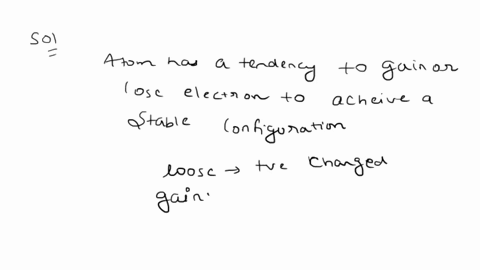 Sol
Atom has a tendency to gain or
lose electron to acheive a
Stable Configuration
loose → +ve Changed
gain.